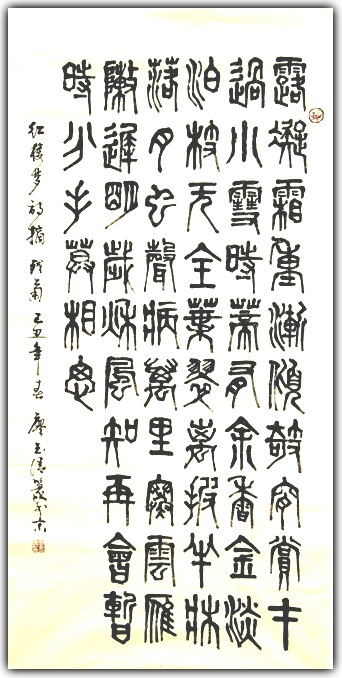 露凝霜重漸傾欹宴賞才
過小雪時蒂有余香金淡
泊枝无全葉翠离披半床
落月蛩聲病萬里寒雲雁
陣遲明歲秋風知再會暫
時分手莫相思
红楼梦詩摘残菊己丑年春廖玉清篆于京